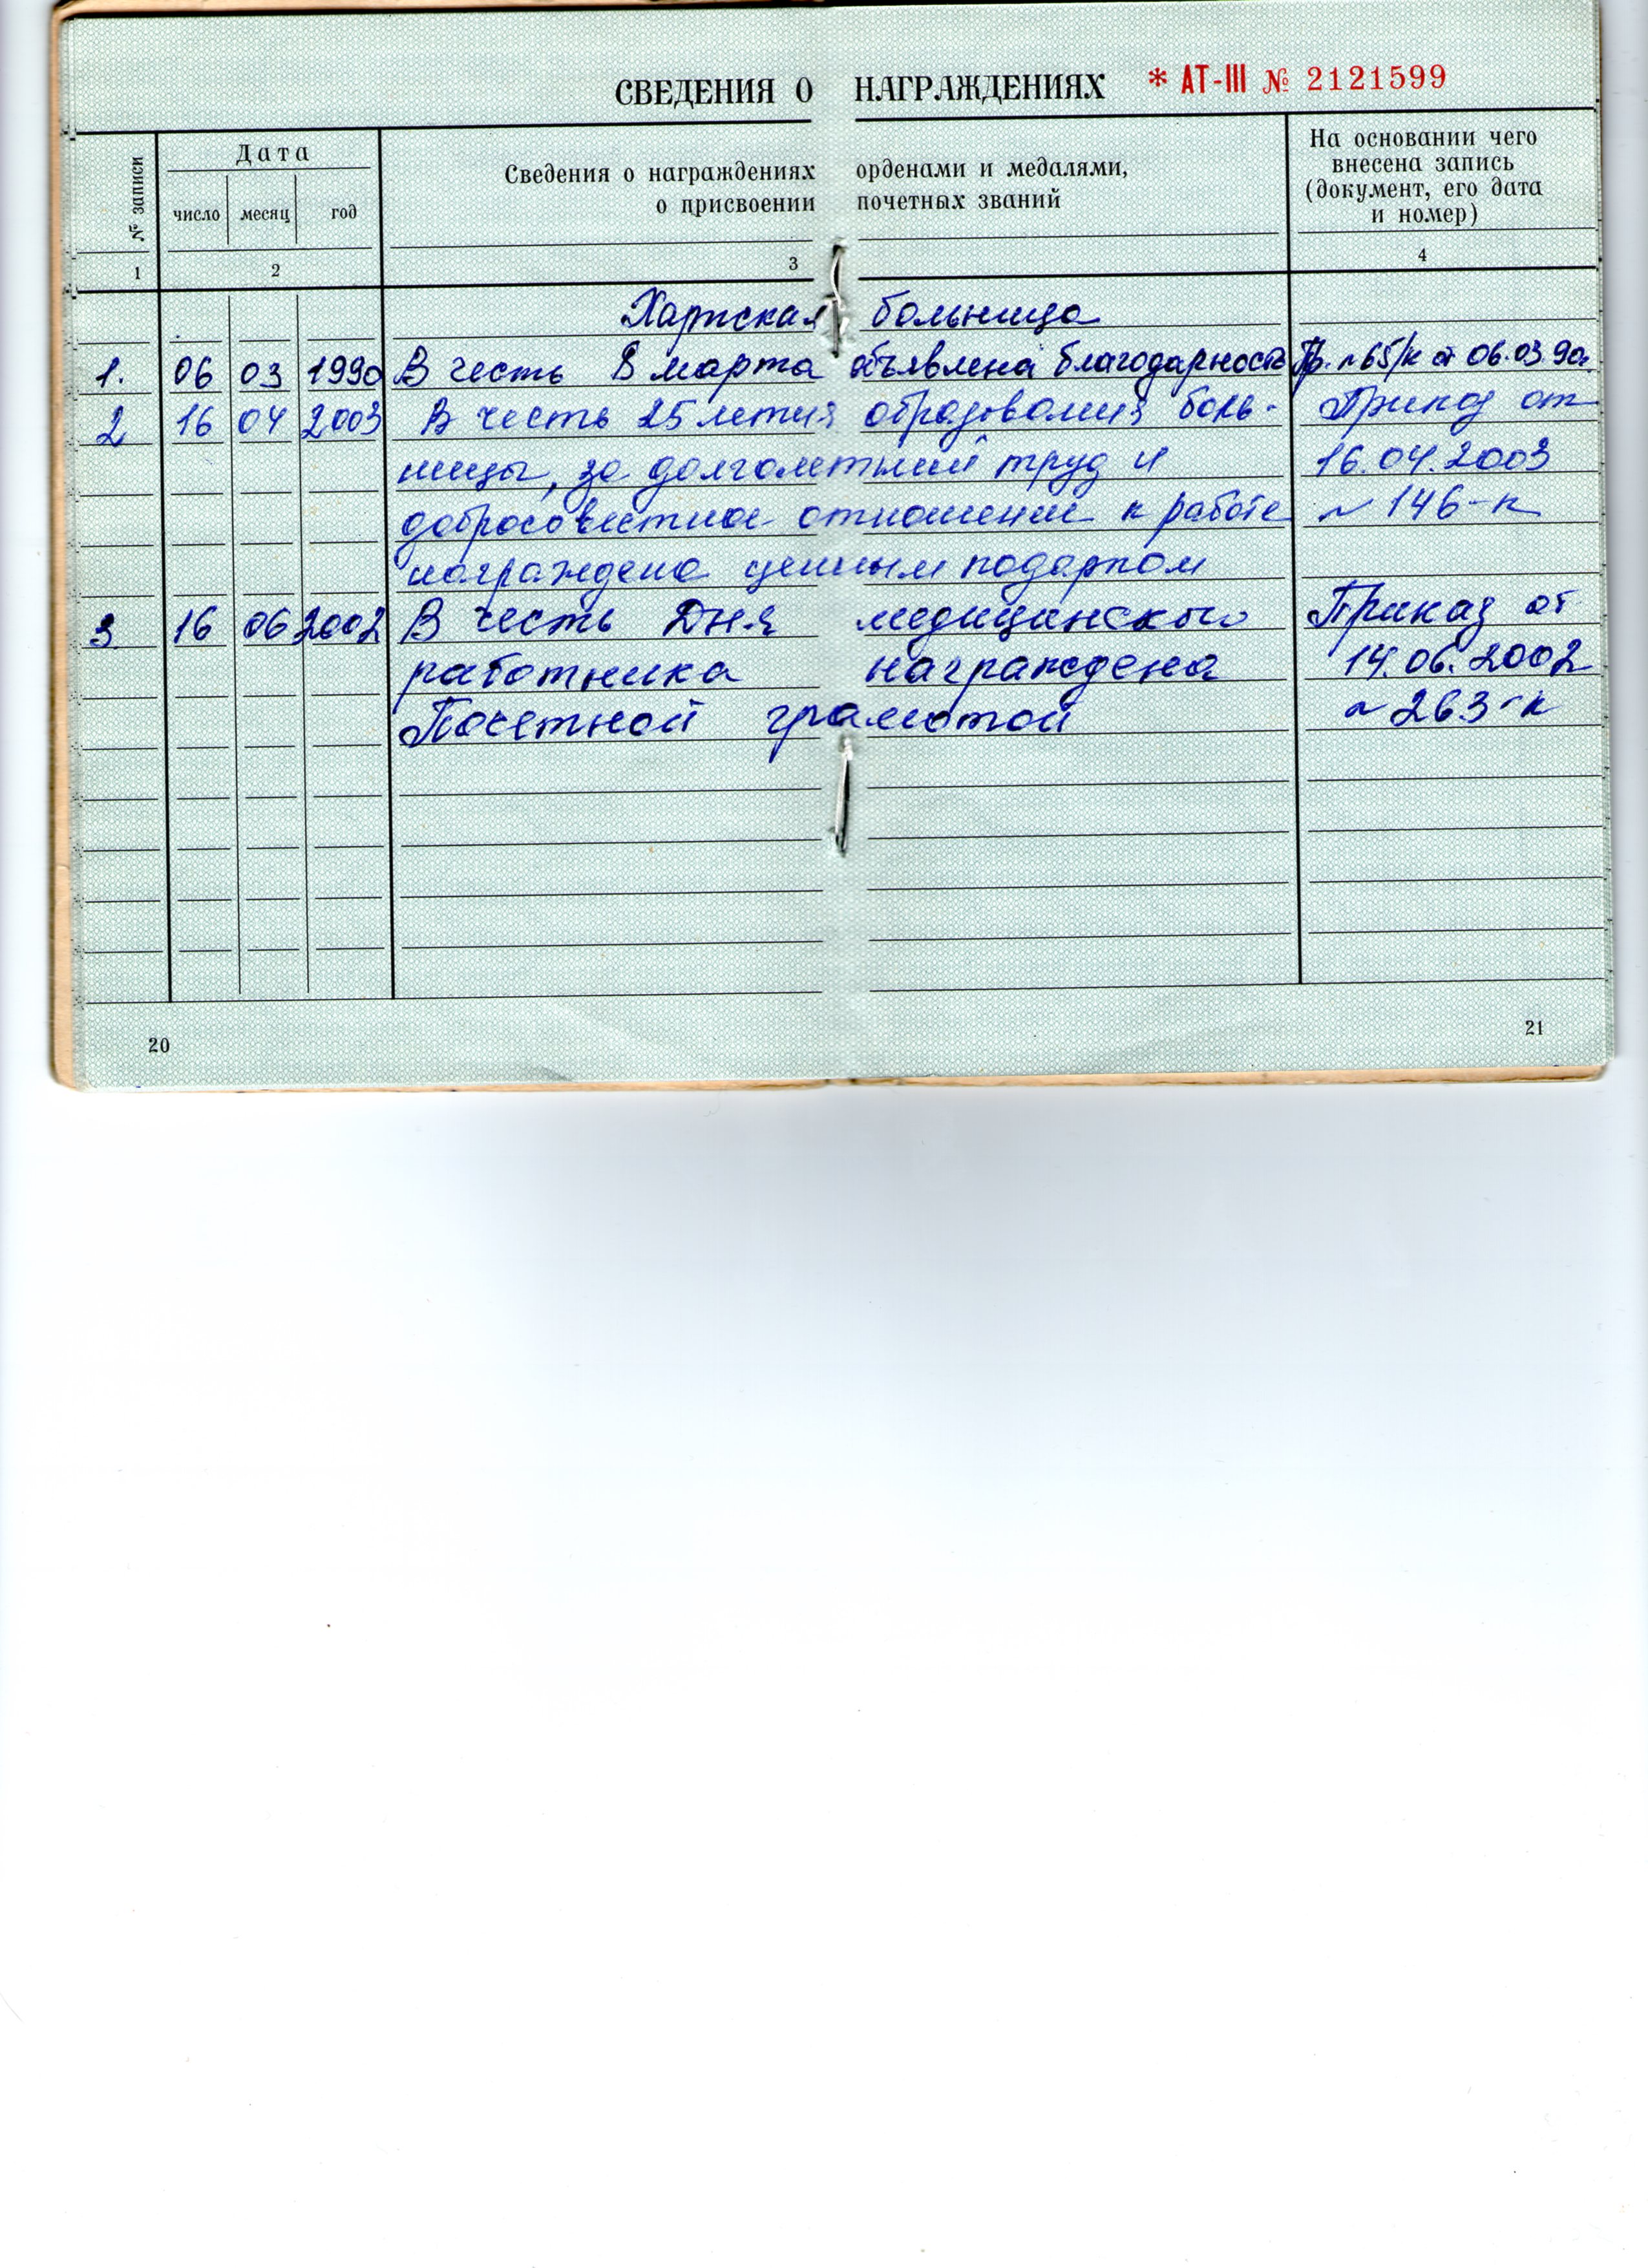 СВЕДЕНИЯ О НАГРАЖДЕНИЯХ * АТ-III № 2121599
№ записи
Дата
число месяц год
Сведения о награждениях орденами и медалями,
о присвоении почетных званий
На основании чего
внесена запись
(документ, его дата
и номер)
1 2 3 4
Харпская больница
1. 06 03 1990 В честь 8 марта объявлена благодарность Пр. №65/к от 06.03.90г.
2 16 04 2003 В честь 25 летия образования боль- Приказ от
ницы, за долголетний труд и 16.04.2003
добросовестное отношение к работе № 146-к
награждена ценным подарком
3. 16 06 2002 В честь Дня медицинского Приказ от
работника награждена 14.06.2002
Почетной грамотой № 263-к
20 21